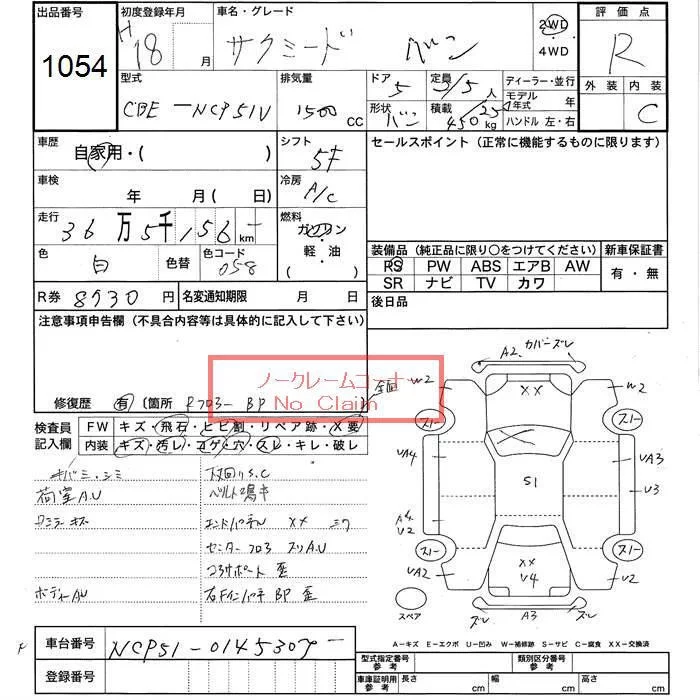 出品番号
1054
初度登録年月
H 18 月
車名・グレード
サクミード バン
2WD
・4WD
評価点
R
外装 内装
C
型式
CBE-NCP51V
排気量
1500 cc
ドア
5
形状
バン
定員
2/5 人
積載
450 kg
ディーラー・並行
モデル年式 年
ハンドル 左・右
車歴
自家用・( )
シフト
5F
セールスポイント（正常に機能するものに限ります）
車検
年 月（ 日）
冷房
A/C
走行
36万5千156 km
燃料
ガソリン
軽・油
( )
色
白
色替
色コード
058
装備品（純正品に限り○をつけてください）
新車保証書
PS PW ABS エアB AW
SR ナビ TV カワ
有・無
R券 8730 円
名変通知期限 月 日
後日品
注意事項申告欄（不具合内容等は具体的に記入して下さい）
ノークレームコーナー
No Claim
修復歴 有 （箇所 Rフロアー BP ）
全面
検査員記入欄
FW キズ・飛石・ヒビ割・リペア跡・X要
内装 キズ・汚レ・コゲ・穴・スレ・キレ・破レ
キバミ・シミ
下回りS.C
荷室A.U
ベルト鳴き
エンドパネル XX ミワ
センターフロア ズリA.U
コアサポート 歪
ボディーAU
右Fインパネ BP 歪
A2 カバーズレ
W2
XX
W2
スリ
スリ
VA4
VA3
S1
V3
A4
V2
スリ
XX
V4
スリ
VA2
V2
スペア
ズレ A3 ズレ
A-キズ E-エクボ U-凹み W-補修跡 S-サビ C-腐食 XX-交換済
車台番号
NCP51-0145307
登録番号
型式指定番号 参考
類別区分番号 参考
車庫証明用 参考
長さ cm
幅 cm
高さ cm